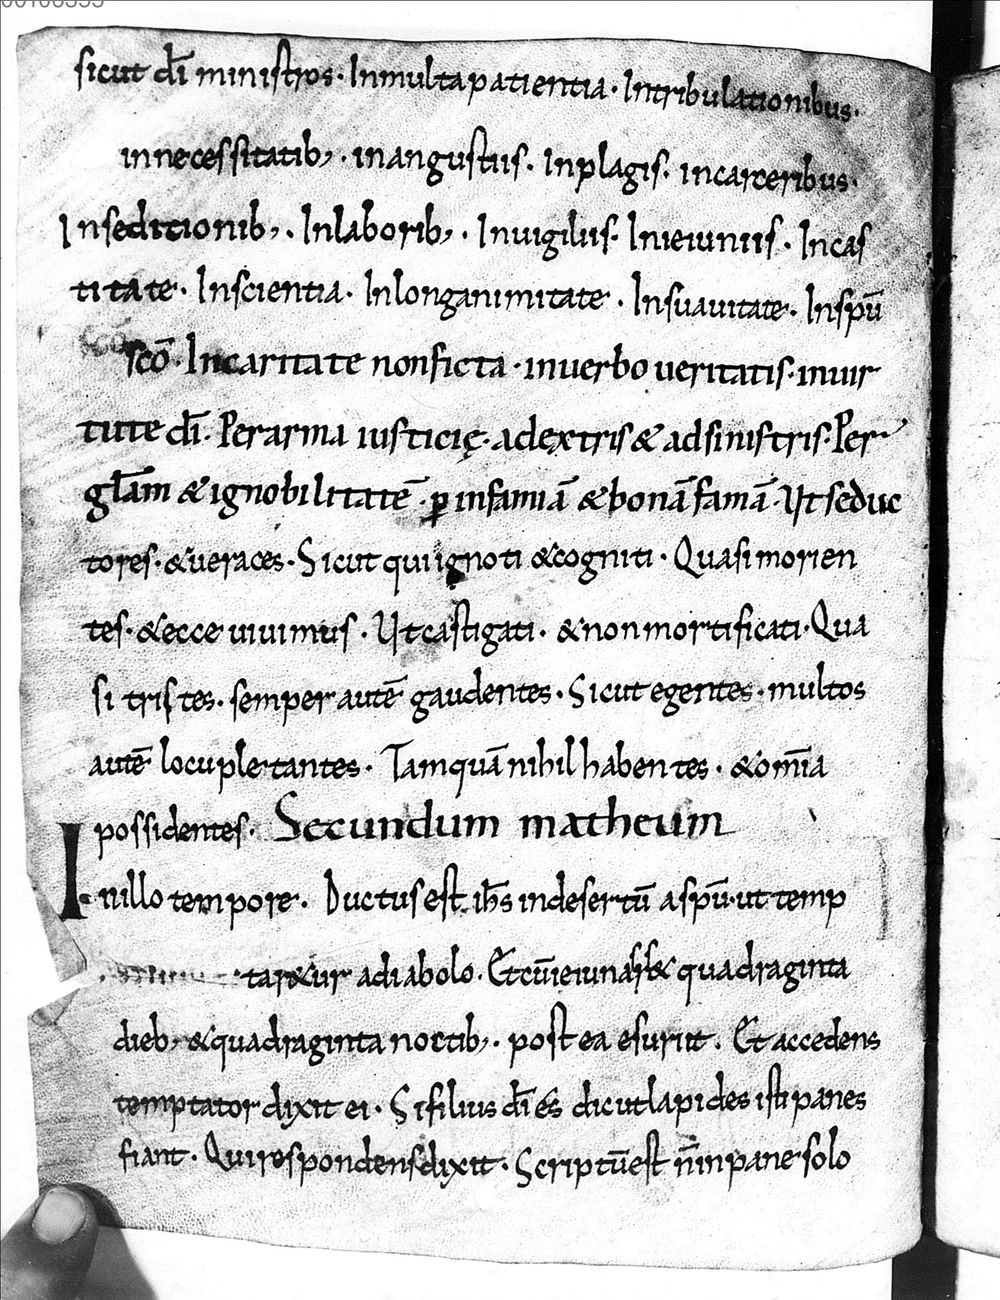 sicut dī ministros· Inmulta patientia· Intribulationibus·
innecessitatib;· inangustiis· Inplagis· incarceribus·
Inseditionib;· Inlaborib;· Inuigiliis· Inieiuniis· Incas
titate· Inscientia· Inlonganimitate· Insuauitate· Inspū
scō· Incaritate nonficta· inuerbo ueritatis· inuir
tute dī· Perarma iusticię· adextris & adsinistris· Per
głam & ignobilitatē· ꝑ infamiā & bonā famā· Ut seduc
tores· & ueraces· Sicut qui ignoti & cogniti· Quasi morien
tes· & ecce uiuimus· Ut castigati· & non mortificati· Qua
si tristes· semper autē gaudentes· Sicut egentes· multos
autē locupletantes· Tamquā nihil habentes· & om̄ia
possidentes· Secundum matheum
Inillo tempore· Ductus est ihs̄ indesertū aspū· ut temp
tar&ur adiabolo· Et cū ieiunass& quadraginta
dieb; & quadraginta noctib;· postea esuriit· Et accedens
temptator dixit ei· Si filius dī es dic ut lapides isti panes
fiant· Qui respondens dixit· Scriptū est n̄ inpane solo